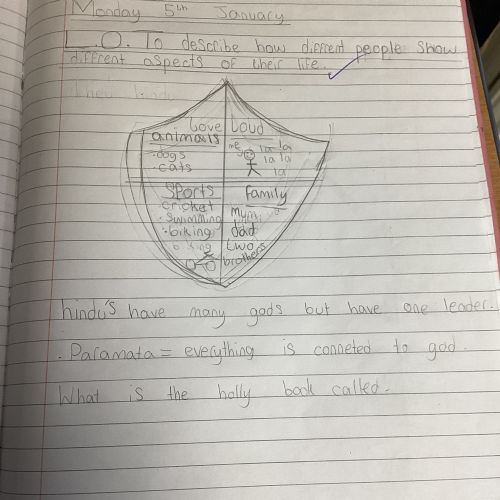 Monday 5th January
L.O. To describe how diffrent people show
diffrent aspects of their life.
Love
animals
·dogs
·cats
Loud
me
la la
la la
la
Sports
·cricket
·swimming
·biking
family
mum
dad
two
brothers
hindu's have many gods but have one leader.
·Paramata = everything is conneted to god.
What is the holly book called.